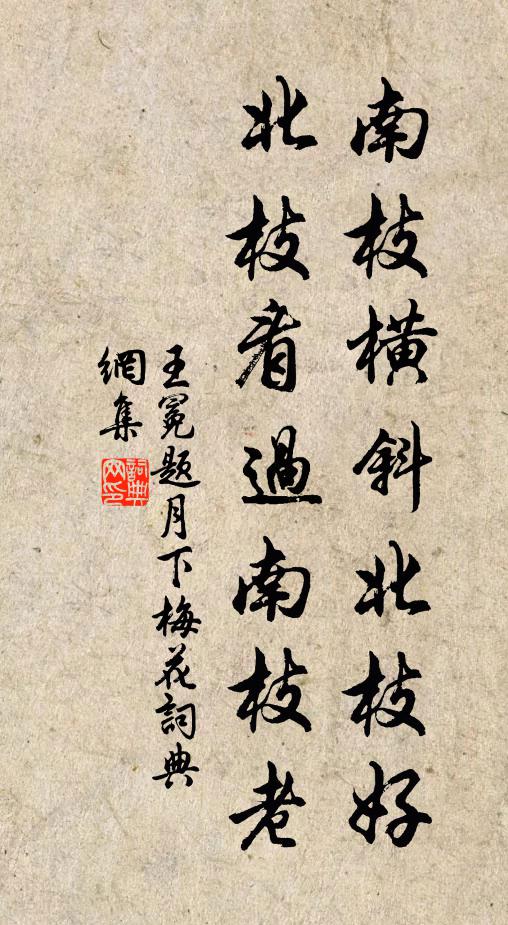 南枝橫斜北枝好
北枝看過南枝老
王冕題月下梅花詞典
網集
詞典網印